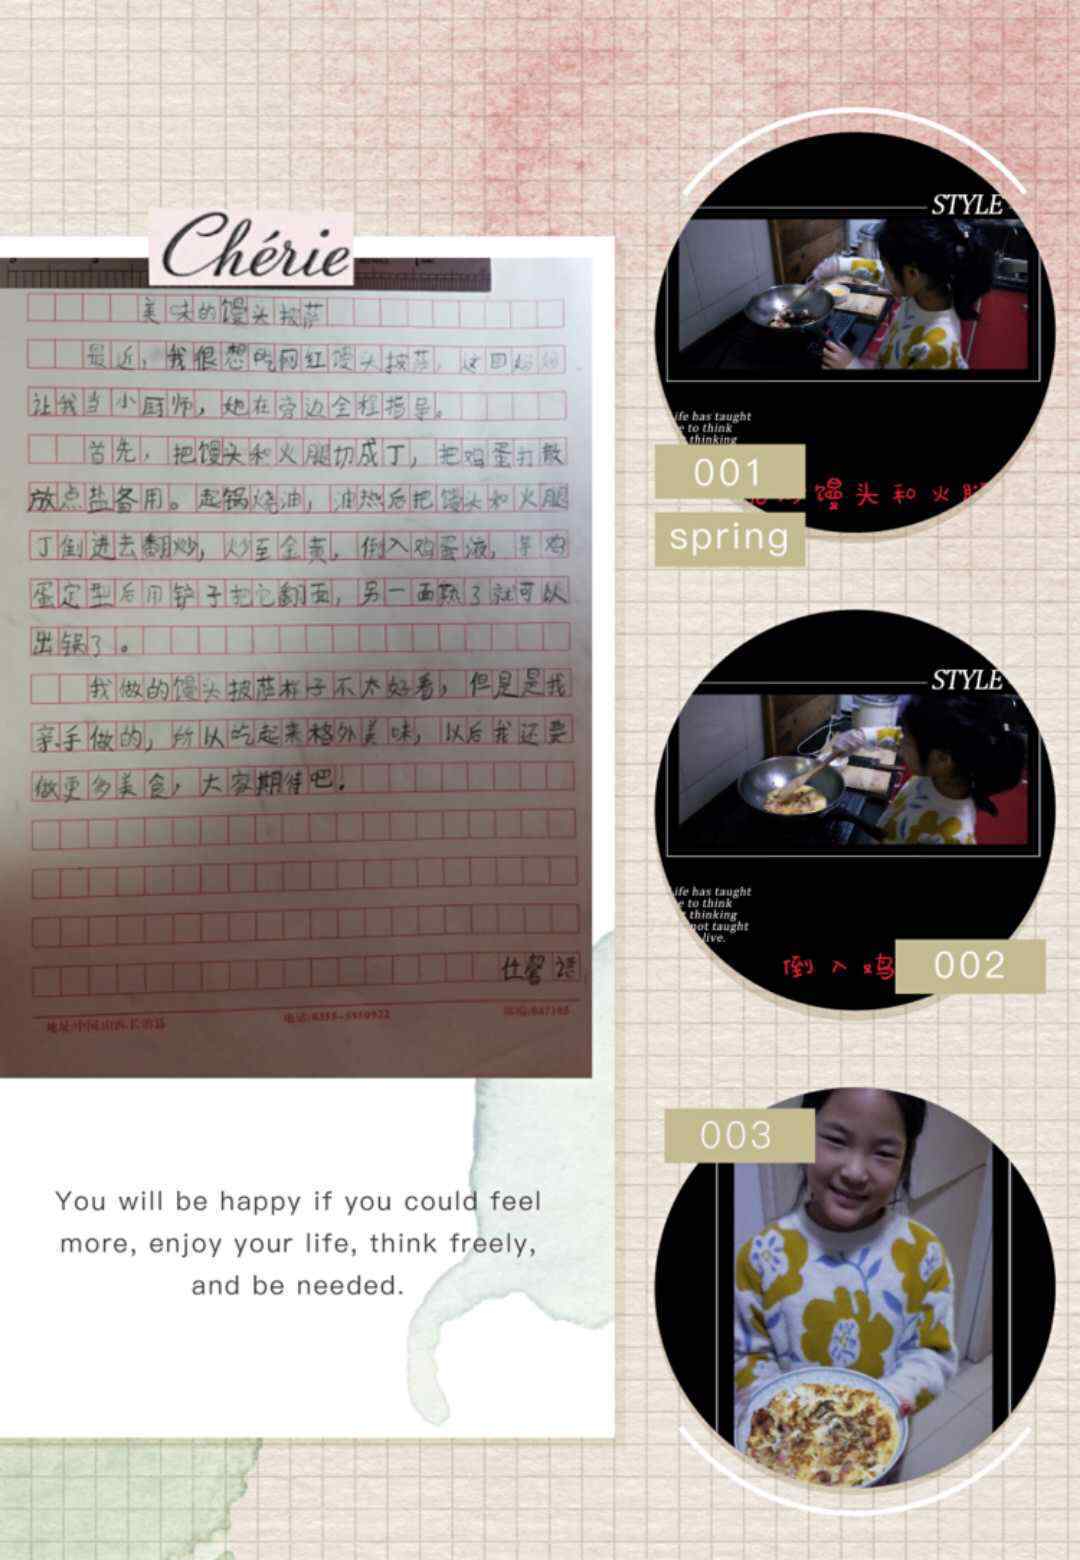 Chérie
美味的馒头披萨
最近，我很想吃网红馒头披萨，这回妈妈
让我当小厨师，她在旁边全程指导。
首先，把馒头和火腿切成丁，把鸡蛋打散
放点盐备用。起锅烧油，油热后把馒头和火腿
丁倒进去翻炒，炒至金黄，倒入鸡蛋液，等鸡
蛋定型后用铲子把它翻面，另一面熟了就可以
出锅了。
我做的馒头披萨样子不太好看，但是是我
亲手做的，所以吃起来格外美味，以后我还要
做更多美食，大家期待吧！
地址:中国山西长治县
电话:0355-
邮编:047105
You will be happy if you could feel
more, enjoy your life, think freely,
and be needed.
STYLE
ife has taught
e to think
thinking
001
馒头和火腿
spring
STYLE
ife has taught
e to think
thinking
not taught
live.
倒入鸡
002
003